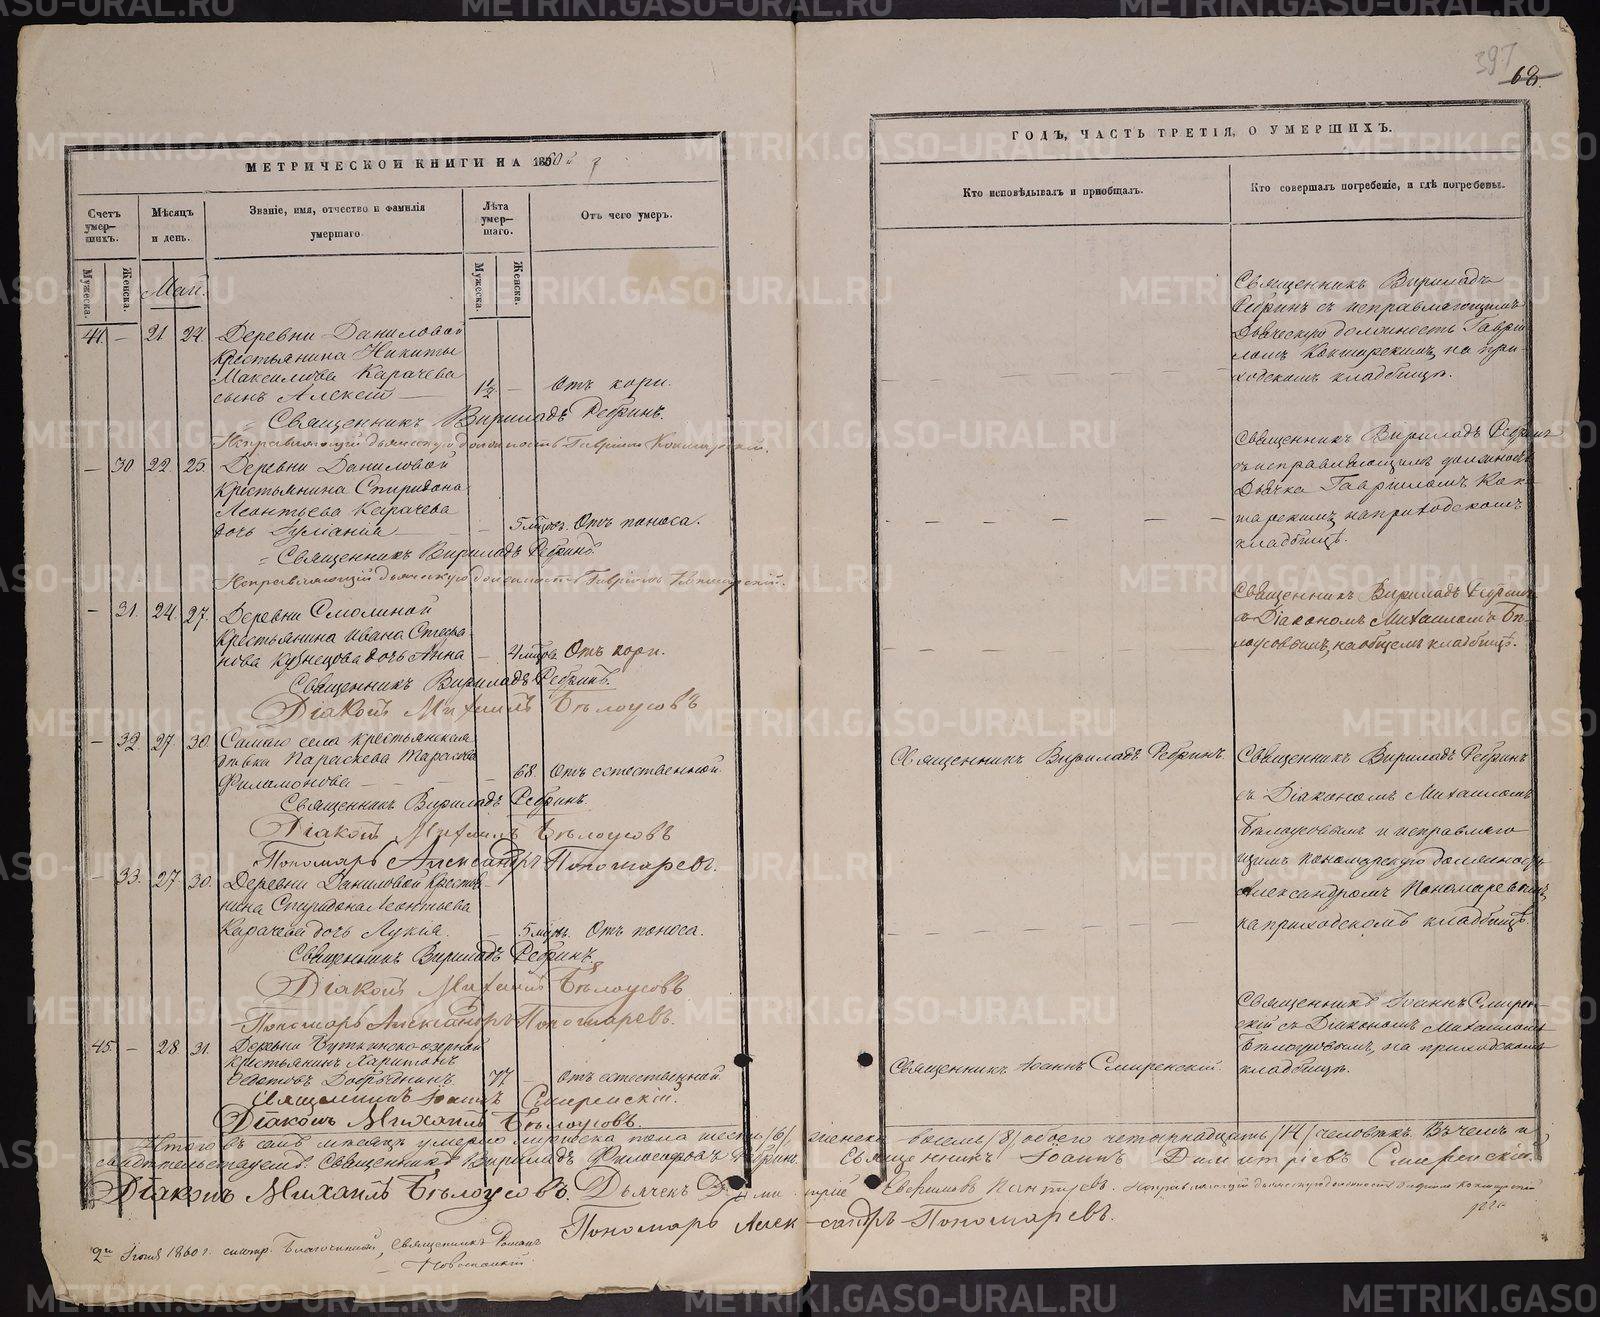 МЕТРИЧЕСКОЙ КНИГИ НА 1860й
Счетъ умершихъ.
Мѣсяцъ и день.
Званіе, имя, отчество и фамилія умершаго
Лѣта умершаго.
Отъ чего умеръ.
Мужеска. Женска.
Мужеска. Женска.
Май.
41. — 21 24. Деревни Даниловой
крестьянина Никиты
Максимова Карачева
сынъ Алексѣй — 1½ — Отъ кори.
Священникъ Вириладъ Ребринъ.
Исправляющій дьяческую должность Гавріилъ
— 30 22 25. Деревни Даниловой
крестьянина Спиридона
Леонтьева Карачева
дочь — — 5 мѣсяц. Отъ поноса.
Священникъ Вириладъ Ребринъ.
Исправляющій дьяческую должность Гавріилъ
— 31. 24. 27. Деревни Смолиной
крестьянина Ивана Стефа-
нова Кузнецова дочь Анна — 4 мѣсяц. Отъ кори.
Священникъ Вириладъ Ребринъ.
Діаконъ Михаилъ Бѣлоусовъ
— 32. 27. 30. Самаго села крестьянская
дѣвка Параскева Тарасова
Филамонова — — 68. Отъ естественной.
Священникъ Вириладъ Ребринъ.
Діаконъ Михаилъ Бѣлоусовъ
Пономарь Александръ Пономаревъ.
— 33. 27. 30. Деревни Даниловой крестья-
нина Спиридона Леонтьева
Карачева дочь Лукія. — 5 мѣсяц. Отъ поноса.
Священникъ Вириладъ Ребринъ.
Діаконъ Михаилъ Бѣлоусовъ
Пономарь Александръ Пономаревъ.
45. — 28 31. Деревни
крестьянинъ Харитонъ
Ѳедотовъ Добрынинъ. 77 — Отъ естественной.
Священникъ Іоаннъ Смиренскій.
Діаконъ Михаилъ Бѣлоусовъ.
397
68.
ГОДЪ, ЧАСТЬ ТРЕТІЯ, О УМЕРШИХЪ.
Кто исповѣдывалъ и пріобщалъ.
Кто совершалъ погребеніе, и гдѣ погребены.
Священникъ Вириладъ
Ребринъ съ исправляющимъ
дьяческую должность Гаврі-
иломъ на при-
ходскомъ кладбищѣ.
Священникъ Вириладъ Ребринъ
съ исправляющимъ должность
дьячка Гавріиломъ
на приходскомъ
кладбищѣ.
Священникъ Вириладъ Ребринъ
съ Діакономъ Михаиломъ Бѣ-
лоусовымъ, на общемъ кладбищѣ.
Священникъ Вириладъ Ребринъ.
Священникъ Вириладъ Ребринъ
съ Діакономъ Михаиломъ
Бѣлоусовымъ и исправляю-
щимъ пономарскую должность
Александромъ Пономаревымъ,
на приходскомъ кладбищѣ.
Священникъ Іоаннъ Смиренскій.
Священникъ Іоаннъ Смирен-
скій съ Діакономъ Михаиломъ
Бѣлоусовымъ, на приходскомъ
кладбищѣ.
Итого въ семъ мѣсяцѣ умерло мужеска пола шесть /6/, женска восемь /8/ обоего четырнадцать /14/ человѣкъ. Въ чемъ и
свидѣтельствуемъ: Священникъ Вириладъ Ребринъ. Священникъ Іоаннъ Димитріевъ Смиренскій.
Діаконъ Михаилъ Бѣлоусовъ. Дьячекъ Димитрій Исправляющій дьяческую должность Гавріилъ
Пономарь Александръ Пономаревъ.
2го Іюня 1860 г. смотр. Благочинный, Священникъ Романъ
METRIKI.GASO-URAL.RU